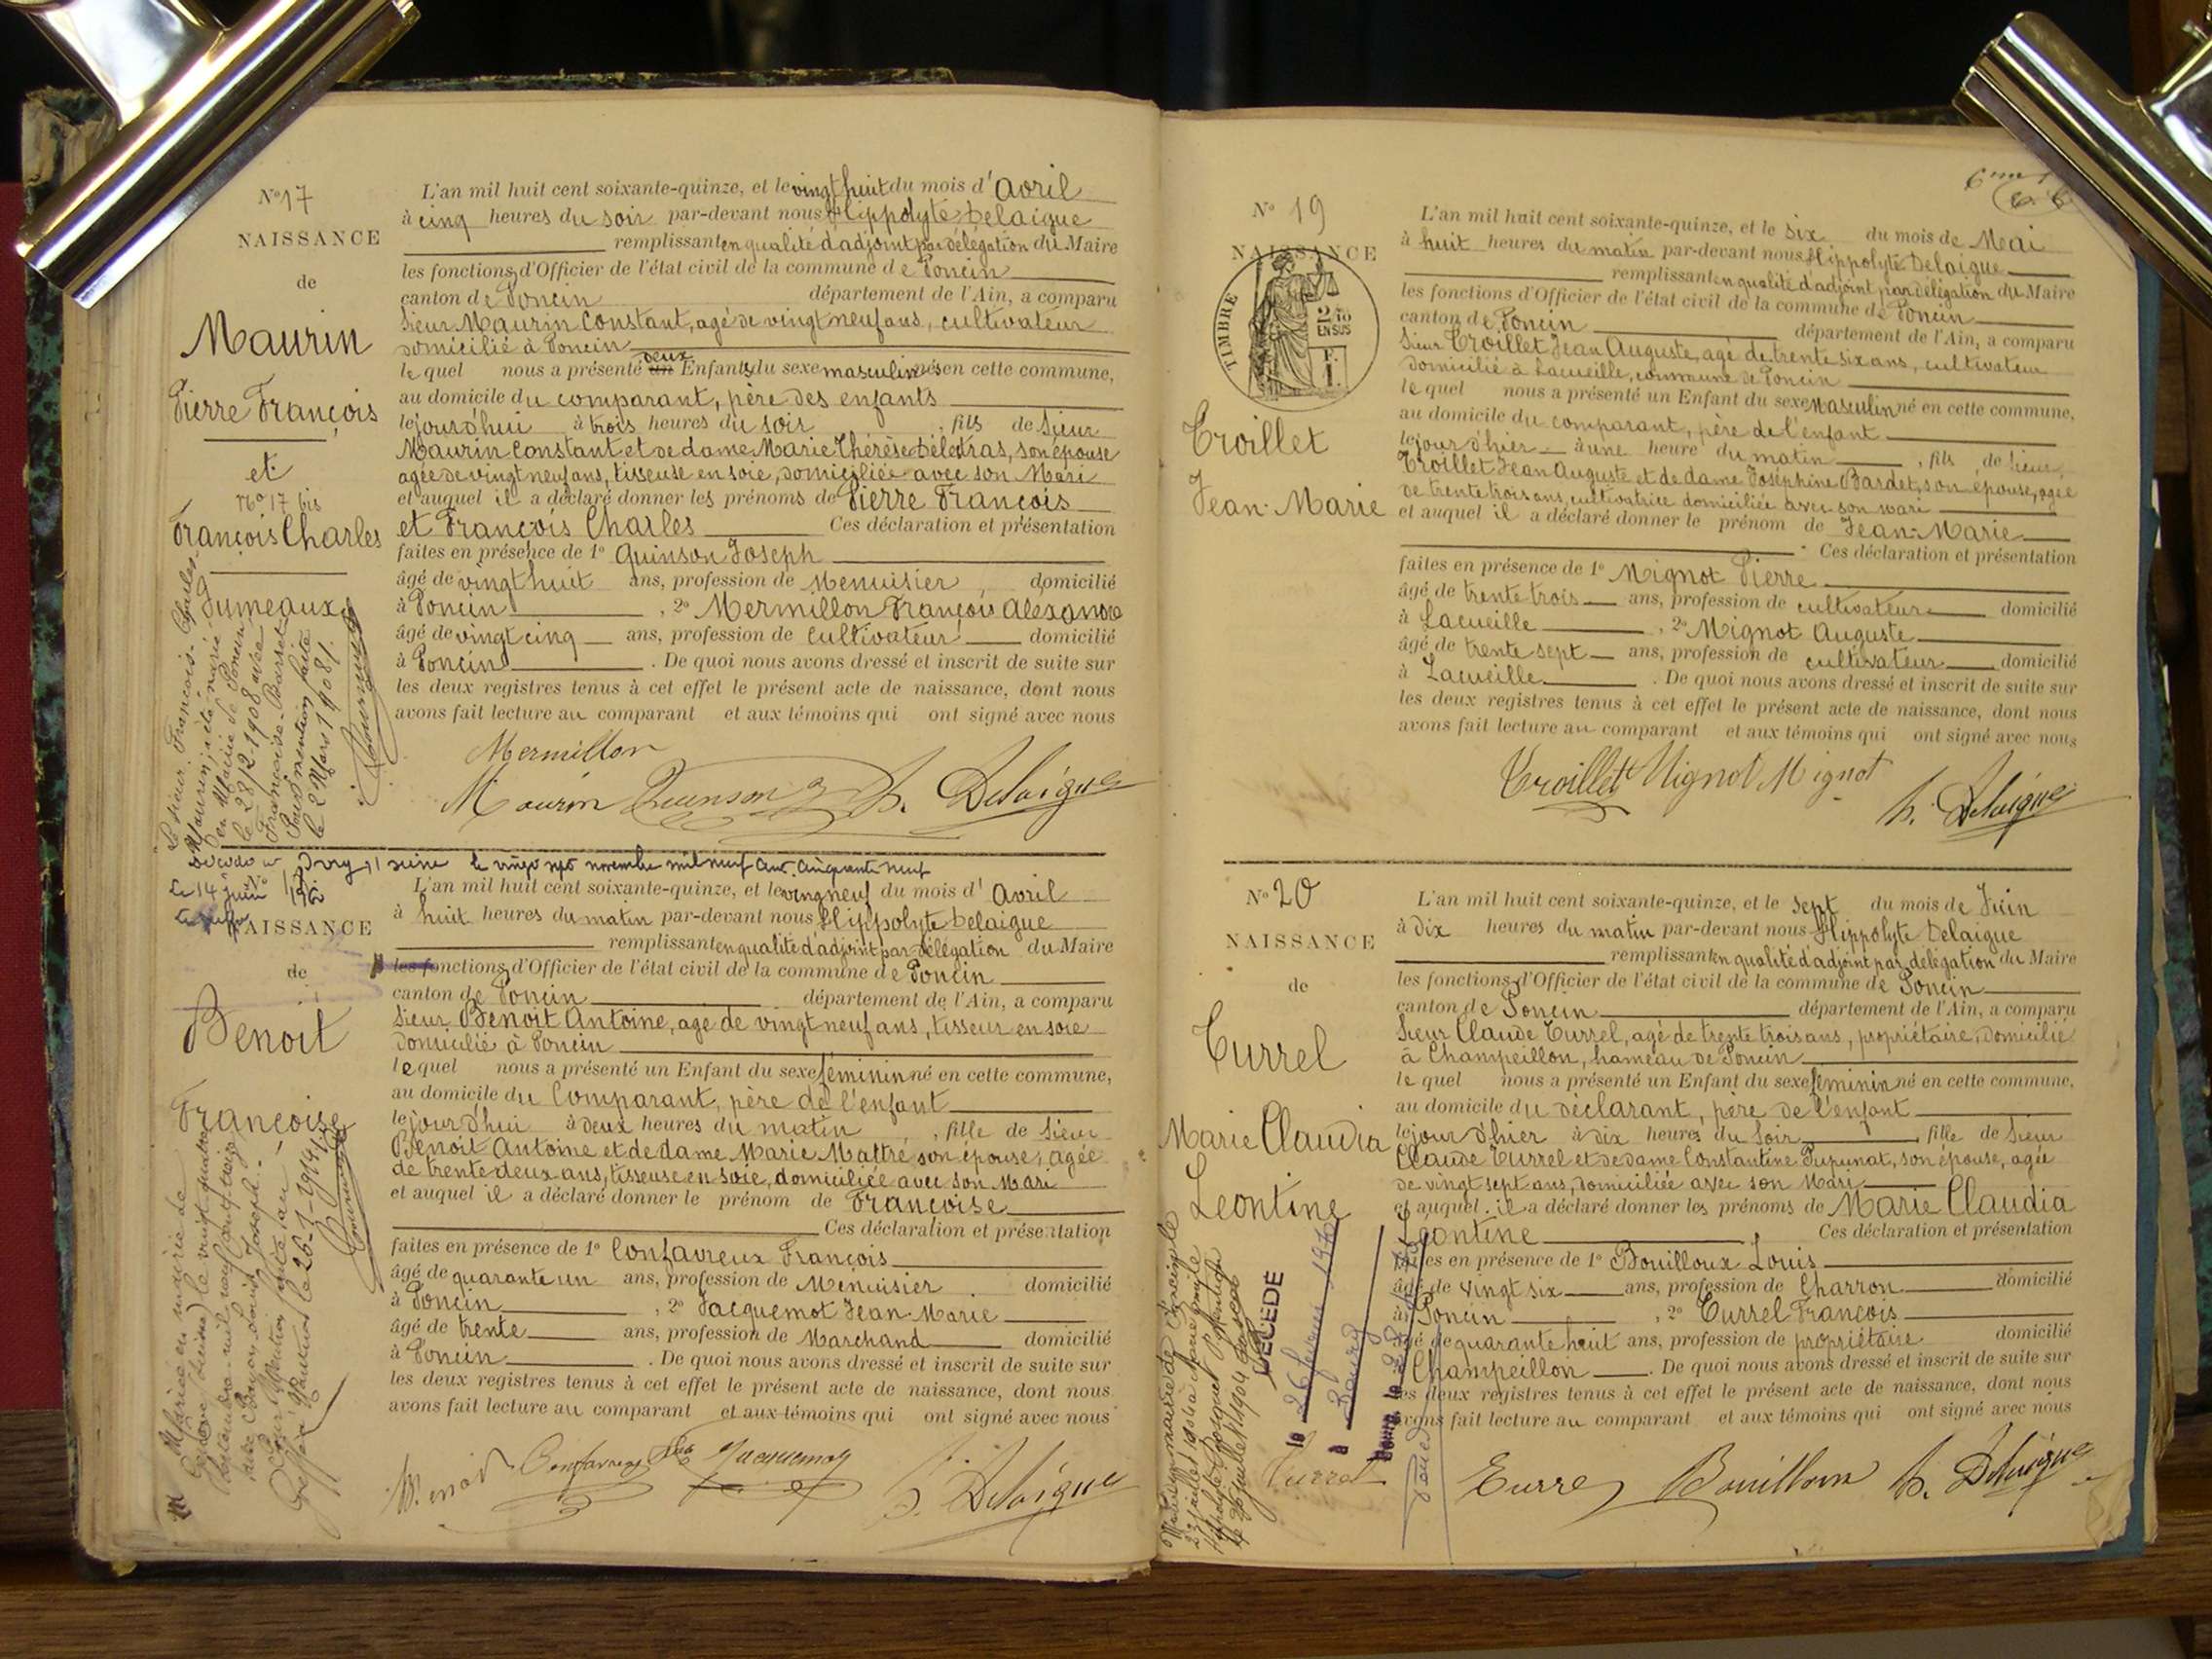 N° 17
NAISSANCE
de
Maurin
Pierre François
et
N° 17 bis
François Charles
Jumeaux
Le sieur François-Charles
Maurin, a été marié
en Mairie de Poncin
le 28/2-1908 avec
Françoise
Pour mention faite
le 2 Mars 1908
L'an mil huit cent soixante-quinze, et le vingt huit du mois d'Avril
à cinq heures du soir par-devant nous Hippolyte Delaigue
remplissant en qualité d'adjoint par délégation du Maire
les fonctions d'Officier de l'état civil de la commune de Poncin
canton de Poncin département de l'Ain, a comparu
Sieur Maurin Constant, agé de vingt neuf ans, cultivateur
domicilié à Poncin
lequel nous a présenté un deux Enfants du sexe masculin nés en cette commune,
au domicile du comparant, père des enfants
le jourd'hui à trois heures du soir, fils de Sieur
Maurin Constant et de dame Marie Thérèse , son épouse
agée de vingt neuf ans, tisseuse en soie, domiciliée avec son Mari
et auquel il a déclaré donner les prénoms de Pierre François
et François Charles Ces déclaration et présentation
faites en présence de 1° Quinson Joseph
âgé de vingt huit ans, profession de Menuisier, domicilié
à Poncin, 2° Mermillon François Alexandre
âgé de vingt cinq ans, profession de Cultivateur domicilié
à Poncin. De quoi nous avons dressé et inscrit de suite sur
les deux registres tenus à cet effet le présent acte de naissance, dont nous
avons fait lecture au comparant et aux témoins qui ont signé avec nous
Mermillon
Maurin Quinson h. Delaigue
le vingt novembre mil neuf cent cinquante neuf
Le 14 Juin
NAISSANCE
de
Benoit
Françoise
Mariée en mairie de
le vingt quatre
avec Louis Joseph.
le 26-1-1914
L'an mil huit cent soixante-quinze, et le vingt neuf du mois d'Avril
à huit heures du matin par-devant nous Hippolyte Delaigue
remplissant en qualité d'adjoint par délégation du Maire
les fonctions d'Officier de l'état civil de la commune de Poncin
canton de Poncin département de l'Ain, a comparu
Sieur Benoit Antoine, agé de vingt neuf ans, tisseur en soie
domicilié à Poncin
lequel nous a présenté un Enfant du sexe féminin né en cette commune,
au domicile du Comparant, père de l'enfant
le jourd'hui à deux heures du matin, fille de Sieur
Benoit Antoine et de dame Marie Mattre son épouse, agée
de trente deux ans, tisseuse en soie, domiciliée avec son Mari
et auquel il a déclaré donner le prénom de Françoise
Ces déclaration et présentation
faites en présence de 1° Confavreux François
âgé de quarante un ans, profession de Menuisier domicilié
à Poncin, 2° Jacquemot Jean-Marie
âgé de trente ans, profession de Marchand domicilié
à Poncin. De quoi nous avons dressé et inscrit de suite sur
les deux registres tenus à cet effet le présent acte de naissance, dont nous
avons fait lecture au comparant et aux témoins qui ont signé avec nous
Benoit Confavreux Jacquemot h. Delaigue
N° 19
NAISSANCE
TIMBRE
2/10
EN SUS
F.
1.
Troillet
Jean-Marie
L'an mil huit cent soixante-quinze, et le six du mois de Mai
à huit heures du matin par-devant nous Hippolyte Delaigue
remplissant en qualité d'adjoint par délégation du Maire
les fonctions d'Officier de l'état civil de la commune de Poncin
canton de Poncin département de l'Ain, a comparu
Sieur Troillet Jean Auguste, agé de trente six ans, cultivateur
domicilié à Lacueille, commune de Poncin
lequel nous a présenté un Enfant du sexe Masculin né en cette commune,
au domicile du comparant, père de l'enfant
le jour d'hier à une heure du matin, fils de Sieur
Troillet Jean Auguste et de dame Joséphine Bardet, son épouse, agée
de trente trois ans, cultivatrice domiciliée avec son mari
et auquel il a déclaré donner le prénom de Jean-Marie
Ces déclaration et présentation
faites en présence de 1° Mignot Pierre
âgé de trente trois ans, profession de cultivateur domicilié
à Lacueille, 2° Mignot Auguste
âgé de trente sept ans, profession de cultivateur domicilié
à Lacueille. De quoi nous avons dressé et inscrit de suite sur
les deux registres tenus à cet effet le présent acte de naissance, dont nous
avons fait lecture au comparant et aux témoins qui ont signé avec nous
Troillet Mignot Mignot h. Delaigue
N° 20
NAISSANCE
de
Turrel
Marie Claudia
Leontine
DÉCÉDÉ
le 26 février 1970
à Bourg
Turrel
L'an mil huit cent soixante-quinze, et le sept du mois de Juin
à dix heures du matin par-devant nous Hippolyte Delaigue
remplissant en qualité d'adjoint par délégation du Maire
les fonctions d'Officier de l'état civil de la commune de Poncin
canton de Poncin département de l'Ain, a comparu
Sieur Claude Turrel, agé de trente trois ans, propriétaire, domicilié
à Champeillon, hameau de Poncin
lequel nous a présenté un Enfant du sexe féminin né en cette commune,
au domicile du déclarant, père de l'enfant
le jour d'hier à dix heures du Soir, fille de Sieur
Claude Turrel et de dame Constantine Pupunat, son épouse, agée
de vingt sept ans, domiciliée avec son Mari
et auquel il a déclaré donner les prénoms de Marie Claudia
Leontine Ces déclaration et présentation
faites en présence de 1° Bouilloux Louis
âgé de vingt six ans, profession de Charron domicilié
à Poncin, 2° Turrel François
âgé de quarante huit ans, profession de propriétaire domicilié
Champeillon. De quoi nous avons dressé et inscrit de suite sur
les deux registres tenus à cet effet le présent acte de naissance, dont nous
avons fait lecture au comparant et aux témoins qui ont signé avec nous
Turrel Bouilloux h. Delaigue